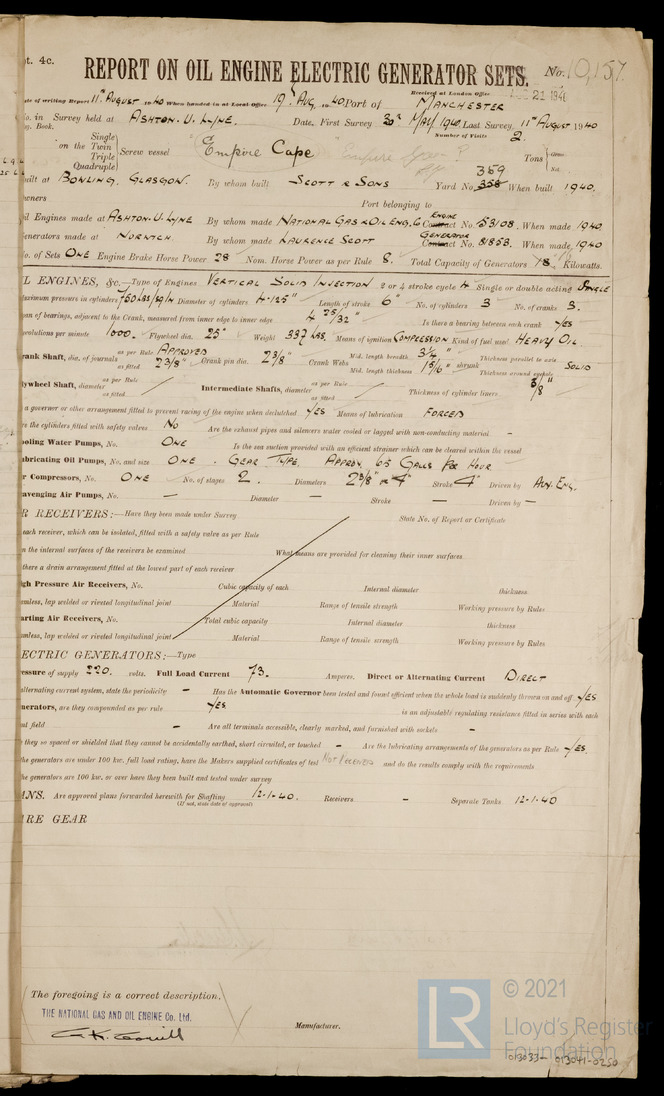 t. 4c.
REPORT ON OIL ENGINE ELECTRIC GENERATOR SETS.
No. 10,157.
Received at London Office
21 1940
ate of writing Report 11th August 1940 When handed in at Local Office 19th Aug, 1940 Port of Manchester
o. in Survey held at Ashton-U-Lyne. Date, First Survey 30th May 1940 Last Survey, 11th August 1940
g. Book. Number of Visits 2.
Single
on the Twin
Triple
Quadruple
Screw vessel "Empire Cape Tons
uilt at Bowling, Glasgow. By whom built Scott & Sons Yard No. 358 359 When built 1940.
wners Port belonging to
il Engines made at Ashton-U-Lyne By whom made National Gas & Oil Eng. Co Contract Engine No. 53108. When made 1940
enerators made at Norwich By whom made Laurence Scott Contract Generator No. 81853. When made 1940
o. of Sets One Engine Brake Horse Power 28 Nom. Horse Power as per Rule 8. Total Capacity of Generators Kilowatts.
L ENGINES, &c.—Type of Engines Vertical Solid Injection 2 or 4 stroke cycle 4 Single or double acting Single
aximum pressure in cylinders 750 lbs/sq/in Diameter of cylinders 4.125" Length of stroke 6" No. of cylinders 3 No. of cranks 3.
an of bearings, adjacent to the Crank, measured from inner edge to inner edge 4 25/32" Is there a bearing between each crank Yes
evolutions per minute 1000. Flywheel dia. 25" Weight 337 lbs. Means of ignition Compression Kind of fuel used Heavy Oil
rank Shaft, dia. of journals as per Rule Approved as fitted 2 3/8" Crank pin dia. 2 3/8" Crank Webs Mid. length breadth 3 1/4" Mid. length thickness 1 5/16" shrunk Thickness parallel to axis Thickness around eyehole Solid
lywheel Shaft, diameter as per Rule as fitted Intermediate Shafts, diameter as per Rule as fitted Thickness of cylinder liners 3/8"
a governor or other arrangement fitted to prevent racing of the engine when declutched Yes Means of lubrication Forced
re the cylinders fitted with safety valves No Are the exhaust pipes and silencers water cooled or lagged with non-conducting material -
ooling Water Pumps, No. One Is the sea suction provided with an efficient strainer which can be cleared within the vessel
ubricating Oil Pumps, No. and size One. Gear Type. Approx. 65 Galls per Hour
r Compressors, No. One No. of stages 2. Diameters 2 3/8" & 4" Stroke 4" Driven by Aux. Eng.
cavenging Air Pumps, No. - Diameter - Stroke - Driven by -
R RECEIVERS:—Have they been made under Survey State No. of Report or Certificate
each receiver, which can be isolated, fitted with a safety valve as per Rule
n the internal surfaces of the receivers be examined What means are provided for cleaning their inner surfaces
there a drain arrangement fitted at the lowest part of each receiver
igh Pressure Air Receivers, No. Cubic capacity of each Internal diameter thickness
amless, lap welded or riveted longitudinal joint Material Range of tensile strength Working pressure by Rules
arting Air Receivers, No. Total cubic capacity Internal diameter thickness
amless, lap welded or riveted longitudinal joint Material Range of tensile strength Working pressure by Rules
ECTRIC GENERATORS:—Type
essure of supply 220. volts. Full Load Current 73. Amperes. Direct or Alternating Current Direct
alternating current system, state the periodicity - Has the Automatic Governor been tested and found efficient when the whole load is suddenly thrown on and off Yes
enerators, are they compounded as per rule Yes. is an adjustable regulating resistance fitted in series with each
nt field - Are all terminals accessible, clearly marked, and furnished with sockets -
e they so spaced or shielded that they cannot be accidentally earthed, short circuited, or touched - Are the lubricating arrangements of the generators as per Rule Yes
the generators are under 100 kw. full load rating, have the Makers supplied certificates of test Not Received and do the results comply with the requirements
he generators are 100 kw. or over have they been built and tested under survey
ANS. Are approved plans forwarded herewith for Shafting 12-1-40. Receivers - Separate Tanks 12-1-40
(If not, state date of approval)
ARE GEAR
The foregoing is a correct description,
THE NATIONAL GAS AND OIL ENGINE Co. Ltd.
Manufacturer.
LR
© 2021
Lloyd's Register
Foundation
013033- 013041-0250